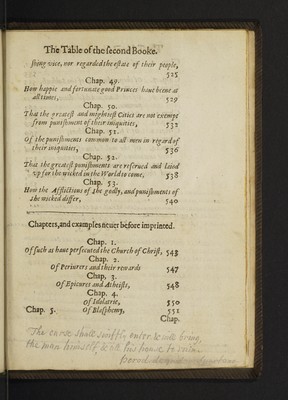 The Table of the second Booke.
shing vice, nor regarded the estate of their people,
525
Chap. 49.
How happie and fortunate good Princes haue beene at
all times, 529
Chap. 50.
That the greatest and mightiest Cities are not exempt
from punishment of their iniquities, 532
Chap. 51.
Of the punishments common to all men in regard of
their iniquities, 536
Chap. 52.
That the greatest punishments are reserued and laied
vp for the wicked in the World to come, 538
Chap. 53.
How the Afflictions of the godly, and punishments of
the wicked differ, 540
Chapters, and examples neuer before imprinted.
Chap. 1.
Of such as haue persecuted the Church of Christ, 543
Chap. 2.
Of Periurers and their rewards 547
Chap. 3.
Of Epicures and Atheists, 548
Chap. 4.
Of Idolatrie, 550
Chap. 5. Of Blasphemy, 551
Chap.
The curse shall swiftly enter & will bring,
the man himself, & all his house to ruin.